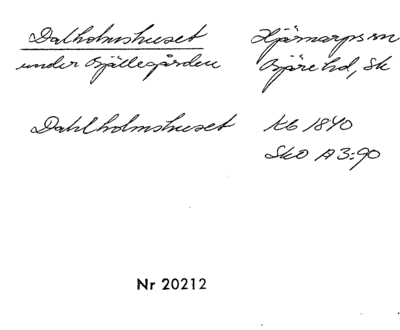 Dalholmshuset Hjärnarps sn
under Bjällegården Bjäre hd, Sk
Dahlholmshuset Kb 1840
SkO A3:90
Nr 20212